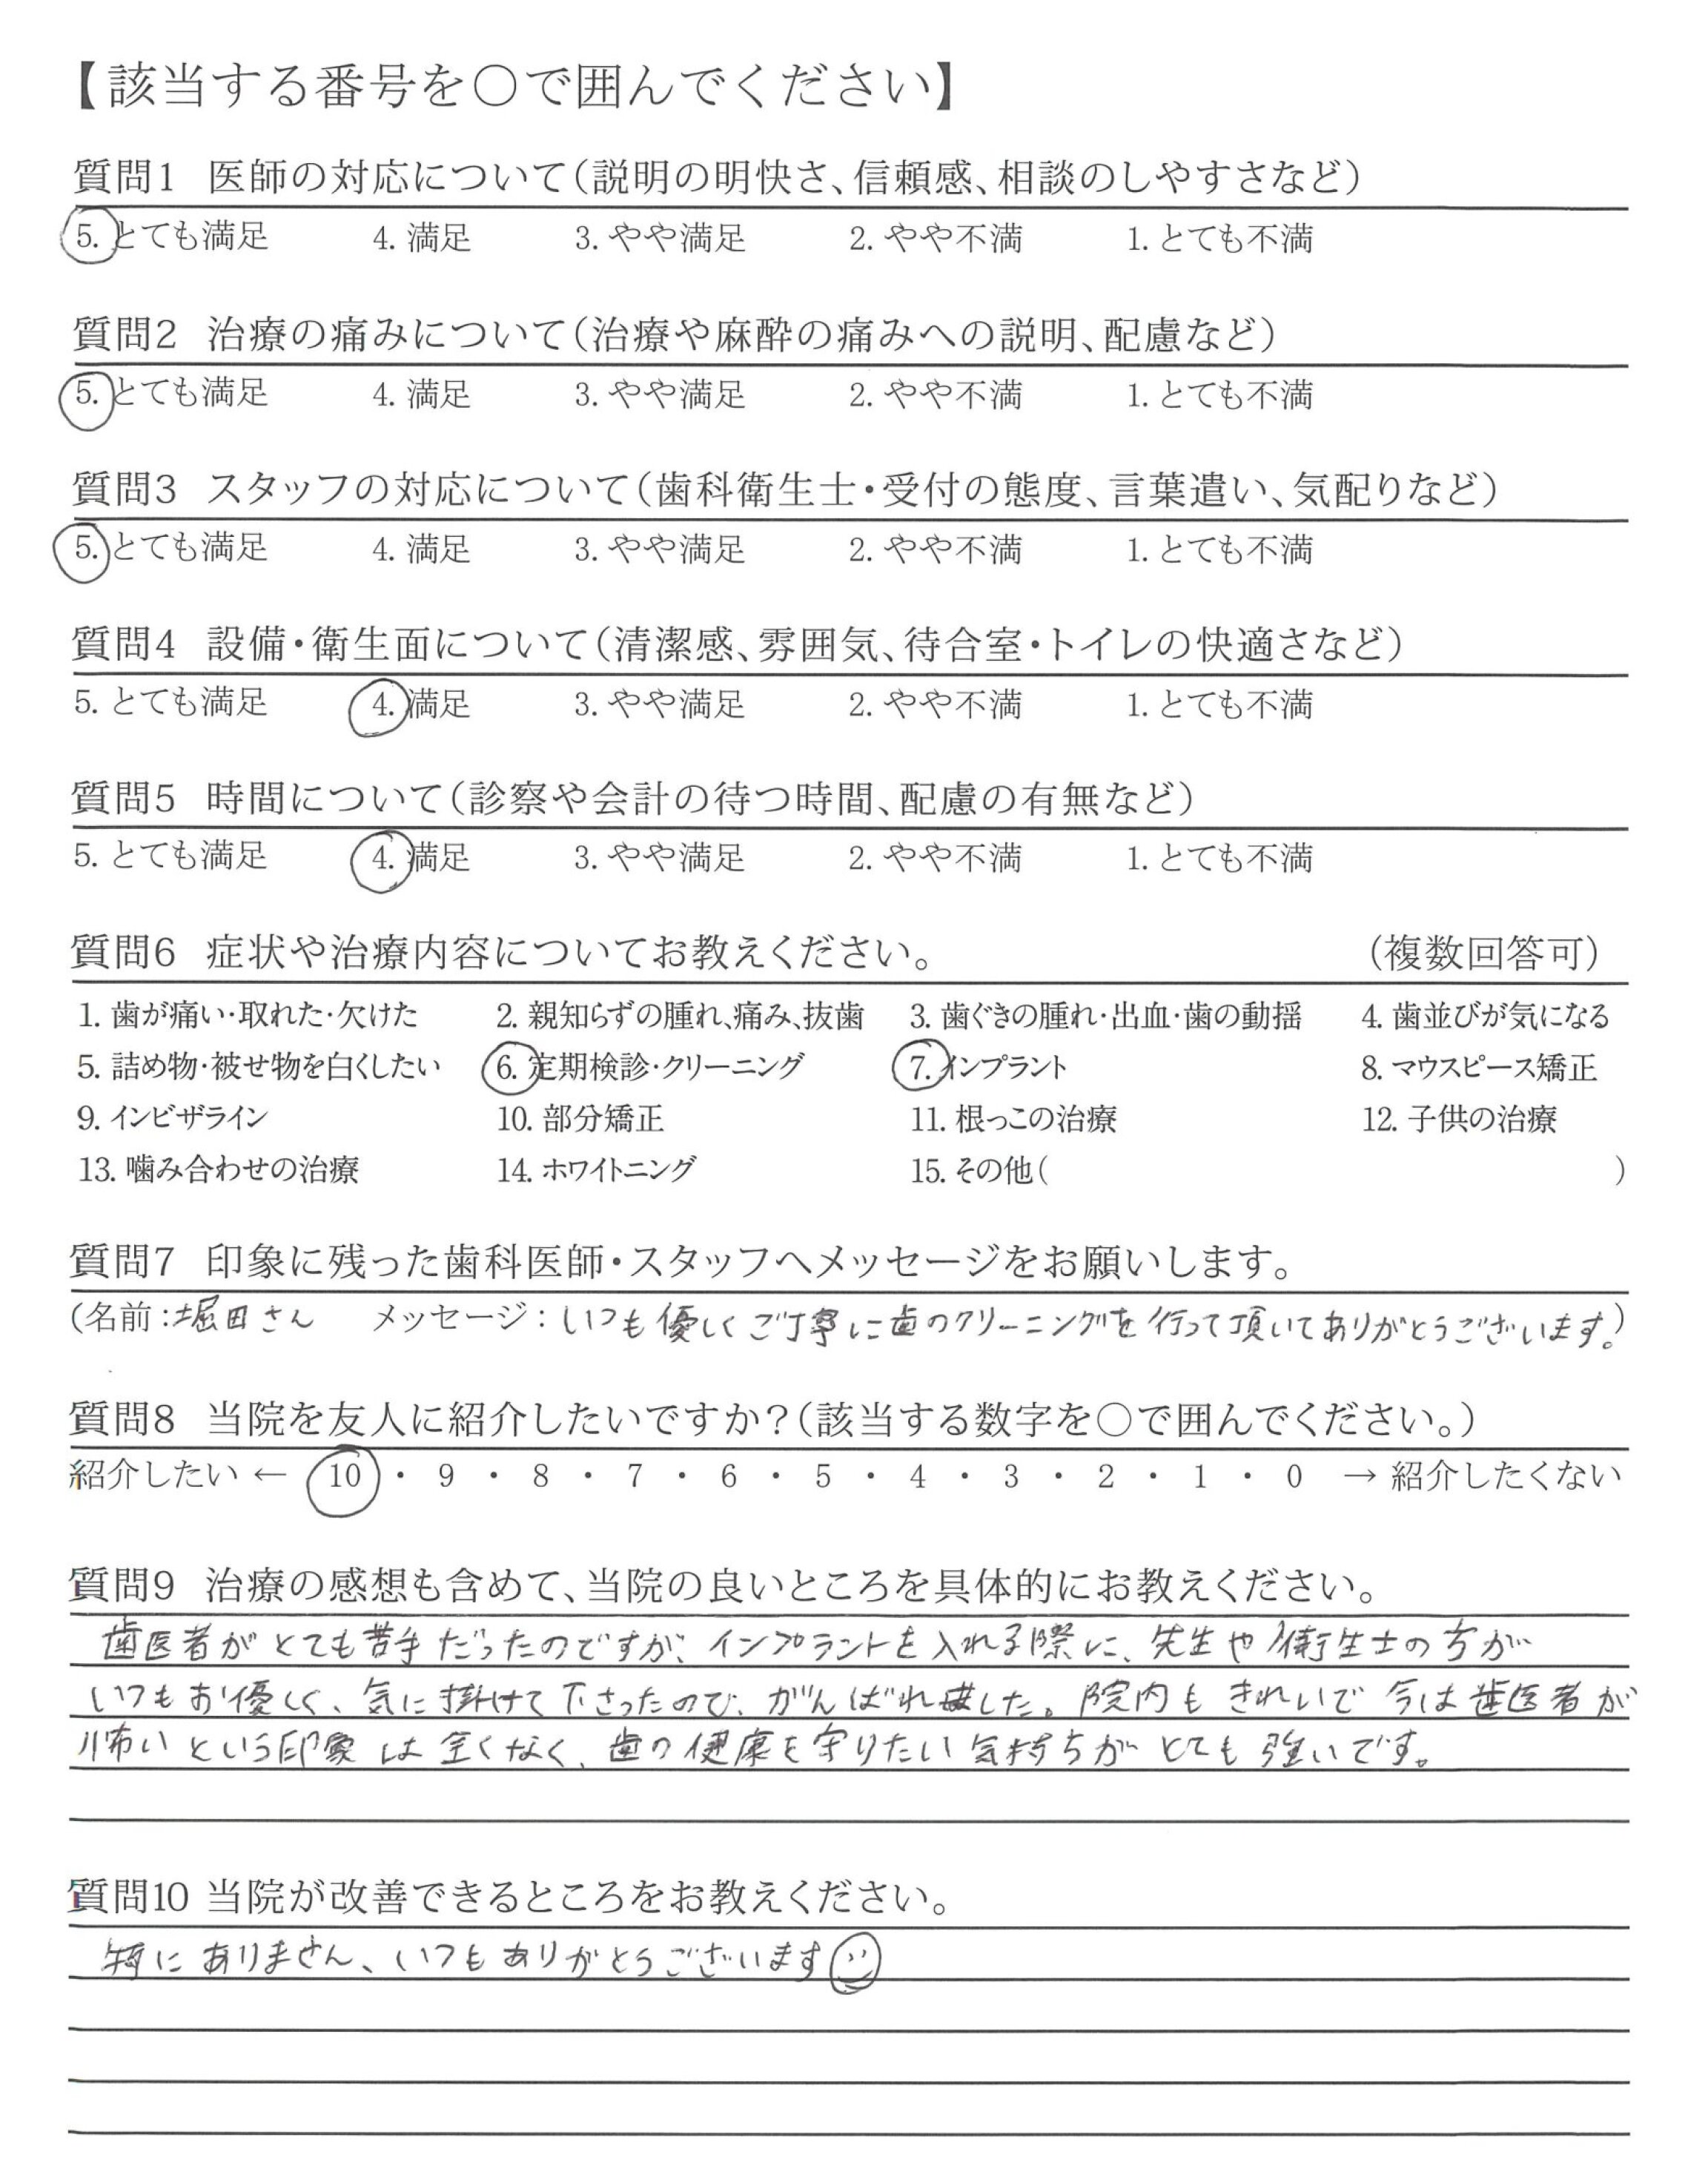 【該当する番号を○で囲んでください】
質問1 医師の対応について(説明の明快さ、信頼感、相談のしやすさなど)
5. とても満足 4. 満足 3. やや満足 2. やや不満 1. とても不満
質問2 治療の痛みについて(治療や麻酔の痛みへの説明、配慮など)
5. とても満足 4. 満足 3. やや満足 2. やや不満 1. とても不満
質問3 スタッフの対応について(歯科衛生士・受付の態度、言葉遣い、気配りなど)
5. とても満足 4. 満足 3. やや満足 2. やや不満 1. とても不満
質問4 設備・衛生面について(清潔感、雰囲気、待合室・トイレの快適さなど)
5. とても満足 4. 満足 3. やや満足 2. やや不満 1. とても不満
質問5 時間について(診察や会計の待つ時間、配慮の有無など)
5. とても満足 4. 満足 3. やや満足 2. やや不満 1. とても不満
質問6 症状や治療内容についてお教えください。 (複数回答可)
1. 歯が痛い・取れた・欠けた 2. 親知らずの腫れ、痛み、抜歯 3. 歯ぐきの腫れ・出血・歯の動揺 4. 歯並びが気になる
5. 詰め物・被せ物を白くしたい 6. 定期検診・クリーニング 7. インプラント 8. マウスピース矯正
9. インビザライン 10. 部分矯正 11. 根っこの治療 12. 子供の治療
13. 噛み合わせの治療 14. ホワイトニング 15. その他( )
質問7 印象に残った歯科医師・スタッフへメッセージをお願いします。
(名前:堀田さん メッセージ:いつも優しくご丁寧に歯のクリーニングを行って頂いてありがとうございます。)
質問8 当院を友人に紹介したいですか?(該当する数字を○で囲んでください。)
紹介したい ← 10 ・ 9 ・ 8 ・ 7 ・ 6 ・ 5 ・ 4 ・ 3 ・ 2 ・ 1 ・ 0 → 紹介したくない
質問9 治療の感想も含めて、当院の良いところを具体的にお教えください。
歯医者がとても苦手だったのですが、インプラントを入れる際に、先生や衛生士の方が
いつもお優しく、気に掛けて下さったので、がんばれました。院内もきれいで今は歯医者が
怖いという印象は全くなく、歯の健康を守りたい気持ちがとても強いです。
質問10 当院が改善できるところをお教えください。
特にありません、いつもありがとうございます